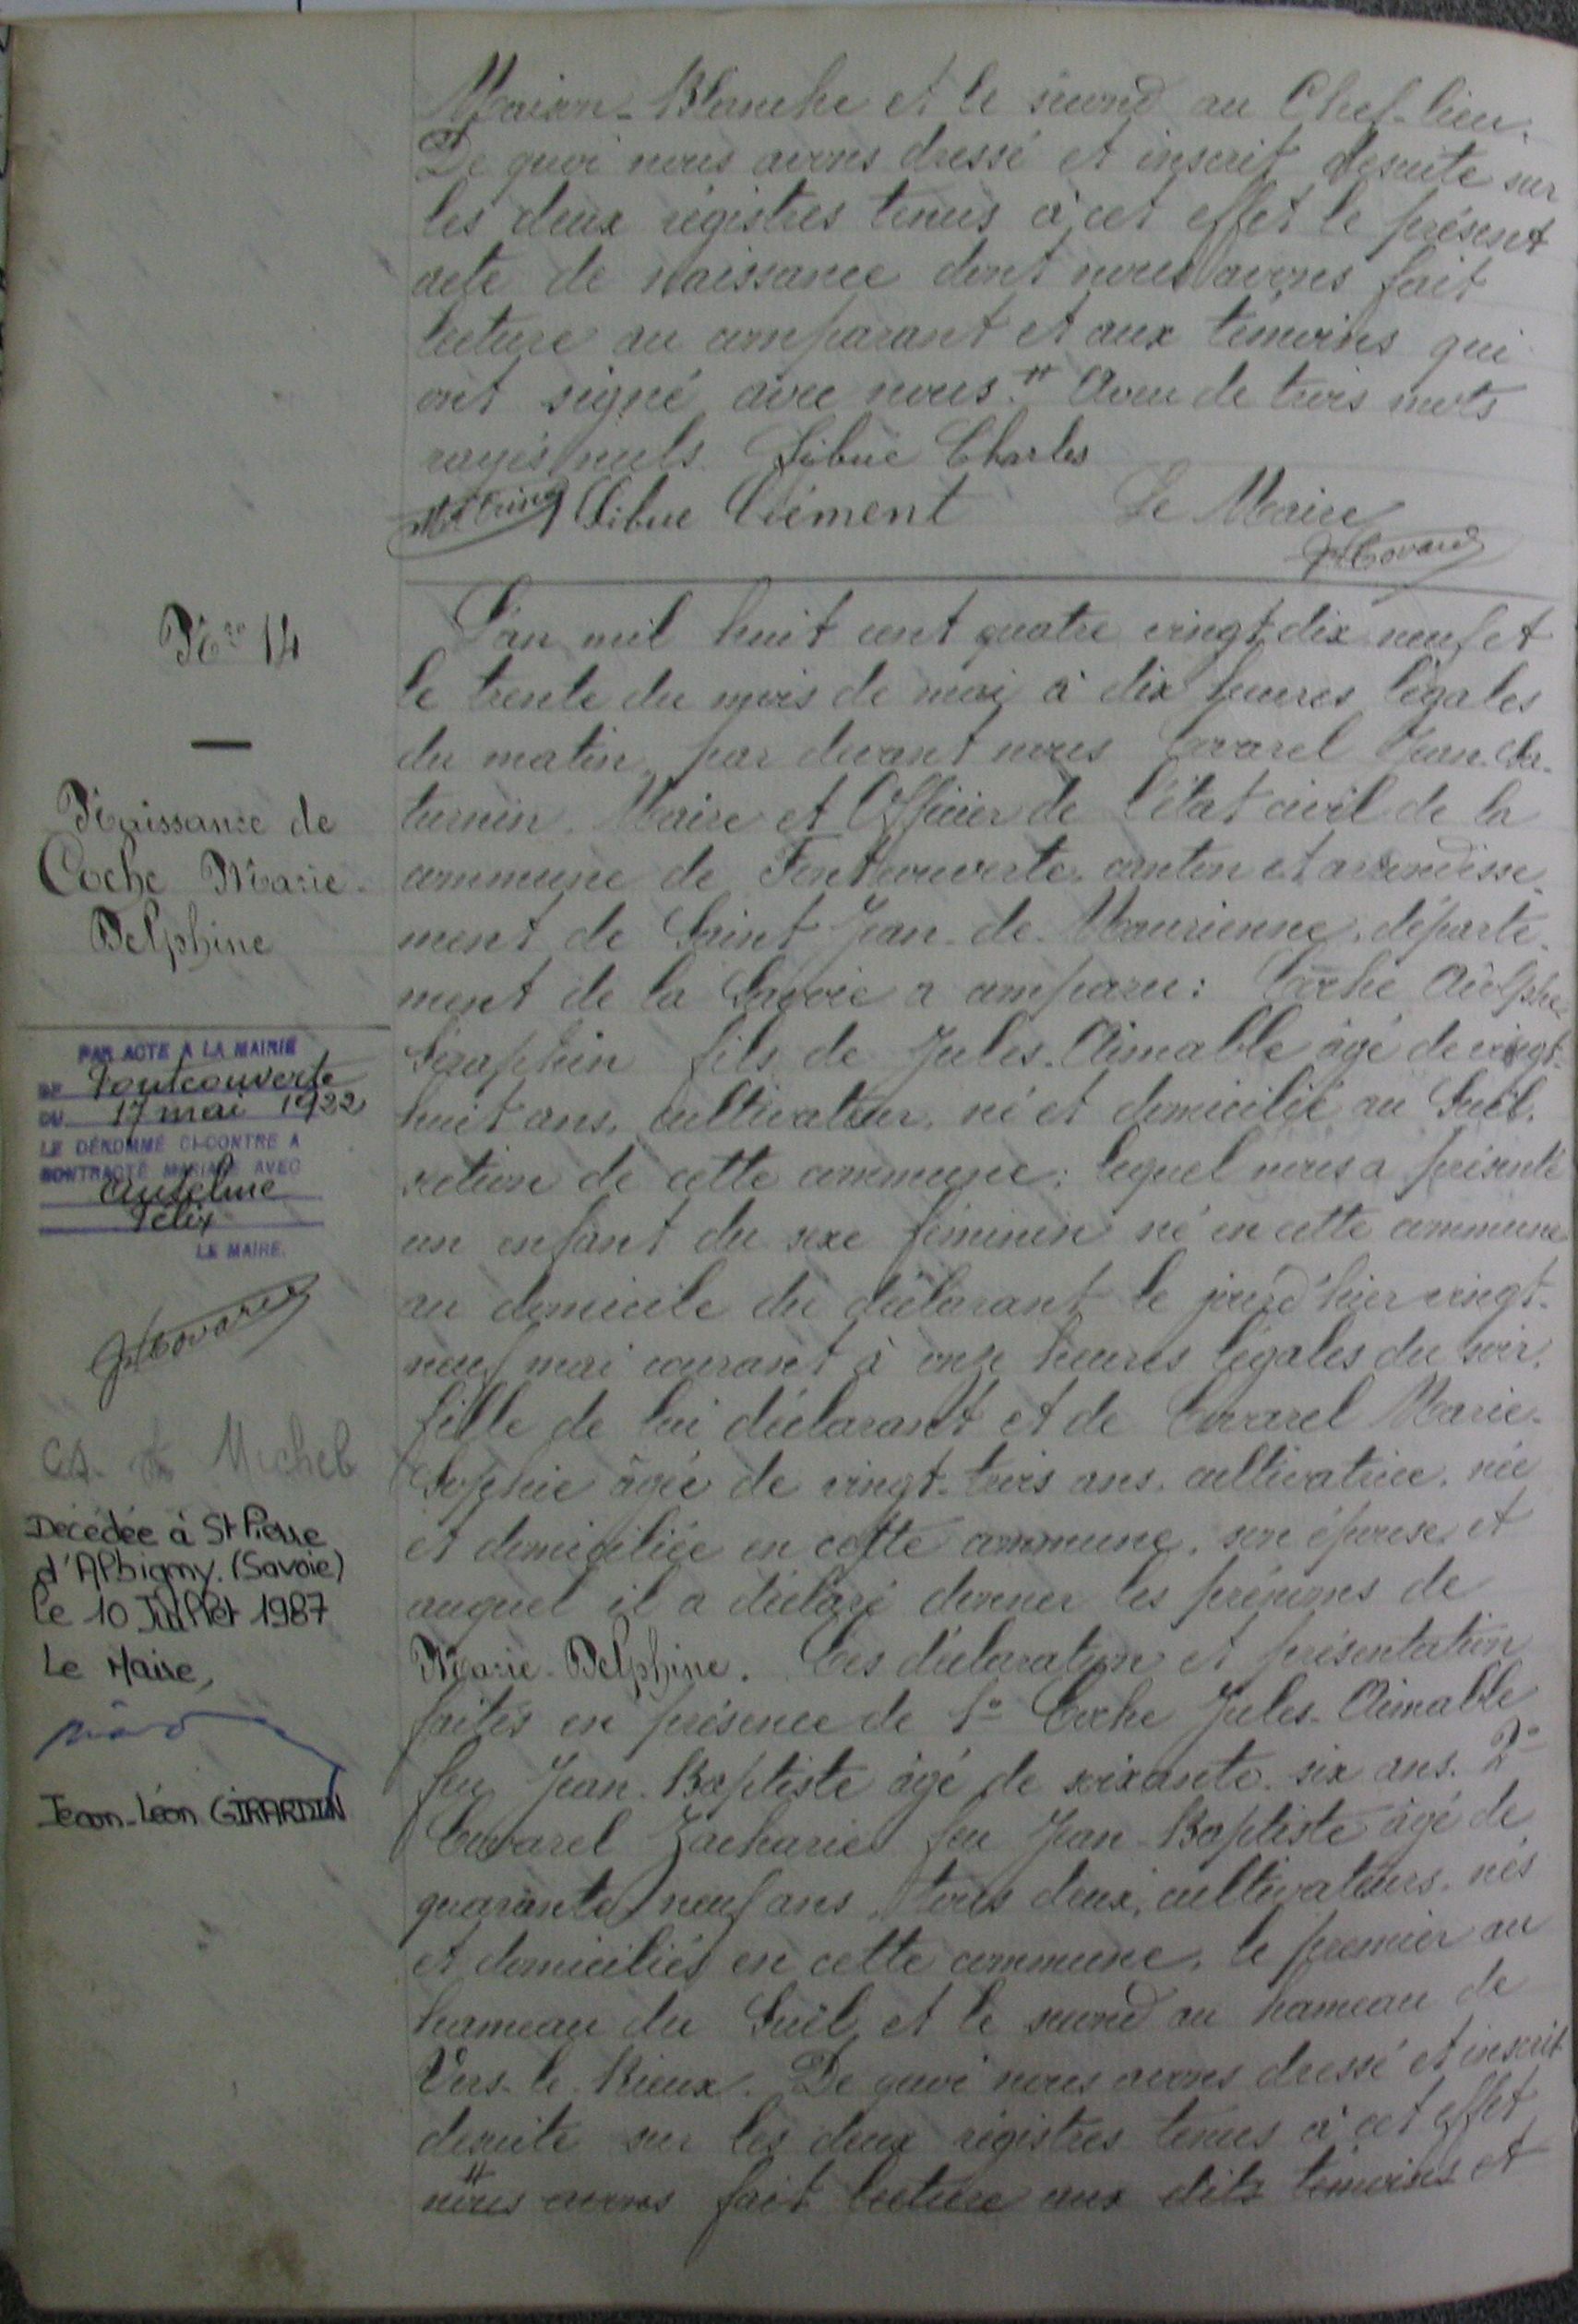 Maison-Blanche et le second au Chef-lieu.
De quoi nous avons dressé et inscrit desuite sur
les deux régistres tenus à cet effet le présent
acte de naissance dont nous avons fait
lecture au comparant et aux témoins qui
ont signé avec nous. Aveu de trois mots
rayés nuls. Sibué Charles
Sibue Clément Le Maire
JSCovarel
Nro 14
Naissance de
Coche Marie-
Delphine
PAR ACTE A LA MAIRIE
DE Fontcouverte
DU 17 mai 1922
LE DÉNOMMÉ CI-CONTRE A
CONTRACTÉ MARIAGE AVEC
Anselme
Félix
LE MAIRE.
JSCovarel
Michel
Décédée à St Pierre
d'Albigny. (Savoie)
le 10 Juillet 1987
Le Maire,
Jean-Léon GIRARDIN
L'an mil huit cent quatre vingt dix neuf et
le trente du mois de mai à dix heures légales
du matin, par devant nous Covarel Jean-Sa-
turnin. Maire et Officier de l'état civil de la
commune de Fontcouverte, canton et arrondisse-
ment de Saint-Jean-de-Maurienne, départe-
ment de la Savoie a comparu: Coche Adolphe
Séraphin fils de Jules-Aimable âgé de vingt-
huit ans, cultivateur, né et domicilié au Suël,
section de cette commune; lequel nous a présenté
un enfant du sexe féminin né en cette commune
au domicile du déclarant le jourd'hier vingt-
neuf mai courant à onze heures légales du soir,
fille de lui déclarant et de Covarel Marie-
Sophie âgée de vingt-trois ans, cultivatrice, née
et domiciliée en cette commune, son épouse, et
auquel il a déclaré donner les prénoms de
Marie-Delphine. Ces déclaration et présentation
faites en présence de 1° Coche Jules-Aimable
feu Jean-Baptiste âgé de soixante-six ans. 2°
Covarel Zacharie feu Jean-Baptiste âgé de
quarante neuf ans, tous deux, cultivateurs, nés
et domiciliés en cette commune, le premier au
hameau du Suël et le second au hameau de
Vers-le-Rieux. De quoi nous avons dressé et inscrit
desuite sur les deux régistres tenus à cet effet
nous avons fait lecture aux dits témoins et